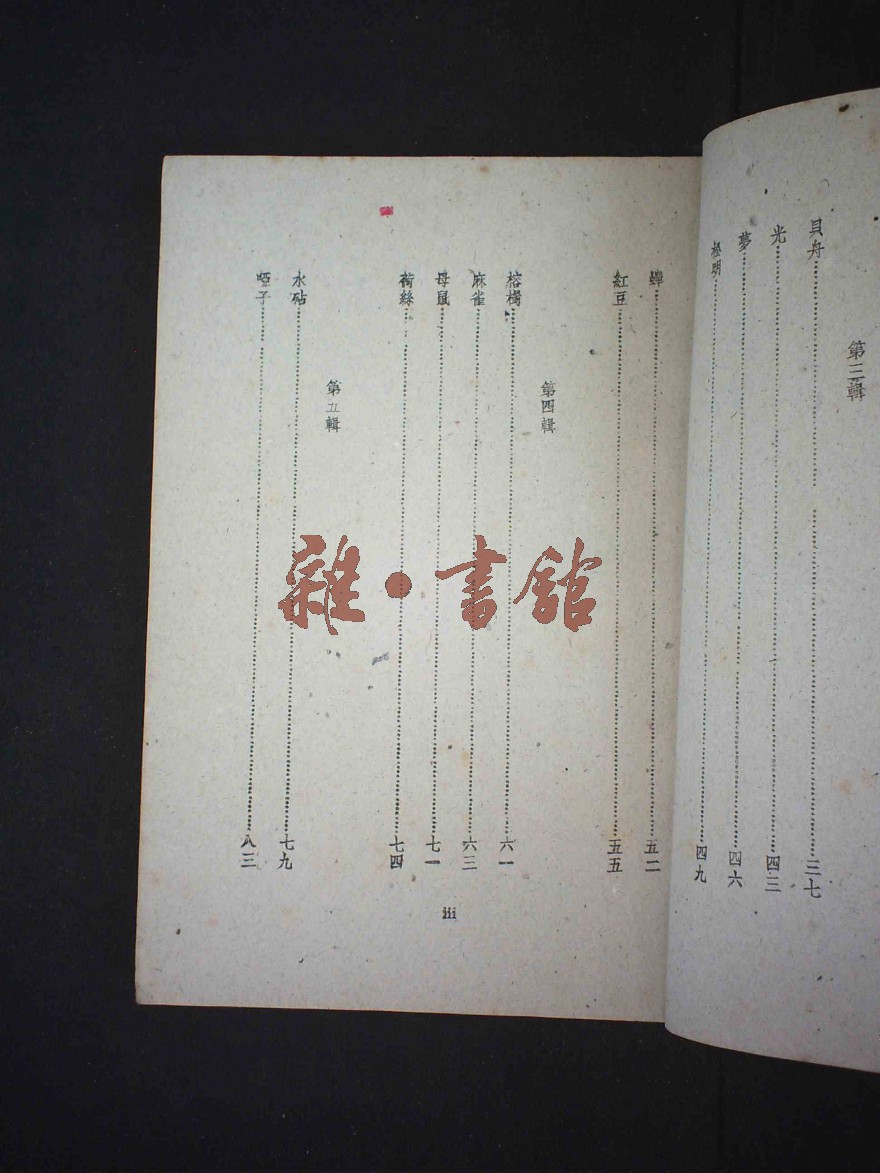 第三輯
貝舟 三七
光 四三
夢 四六
松明 四九
蟬 五二
紅豆 五五
第四輯
榕樹 六一
麻雀 六三
母鼠 七一
荷絲 七四
第五輯
水砧 七九
啞子 八三
iii
雜·書館